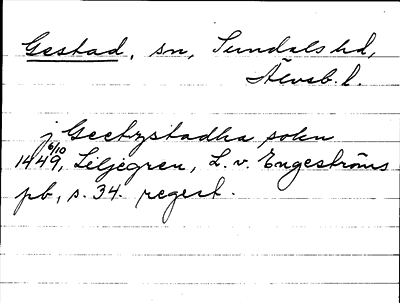 Gestad, sn, Sundals hd,
Älvsb. l.
j Geetzstadha sokn
6/10
1449, Liljegren, L. v. Engeströms
pb, s. 34. regest.